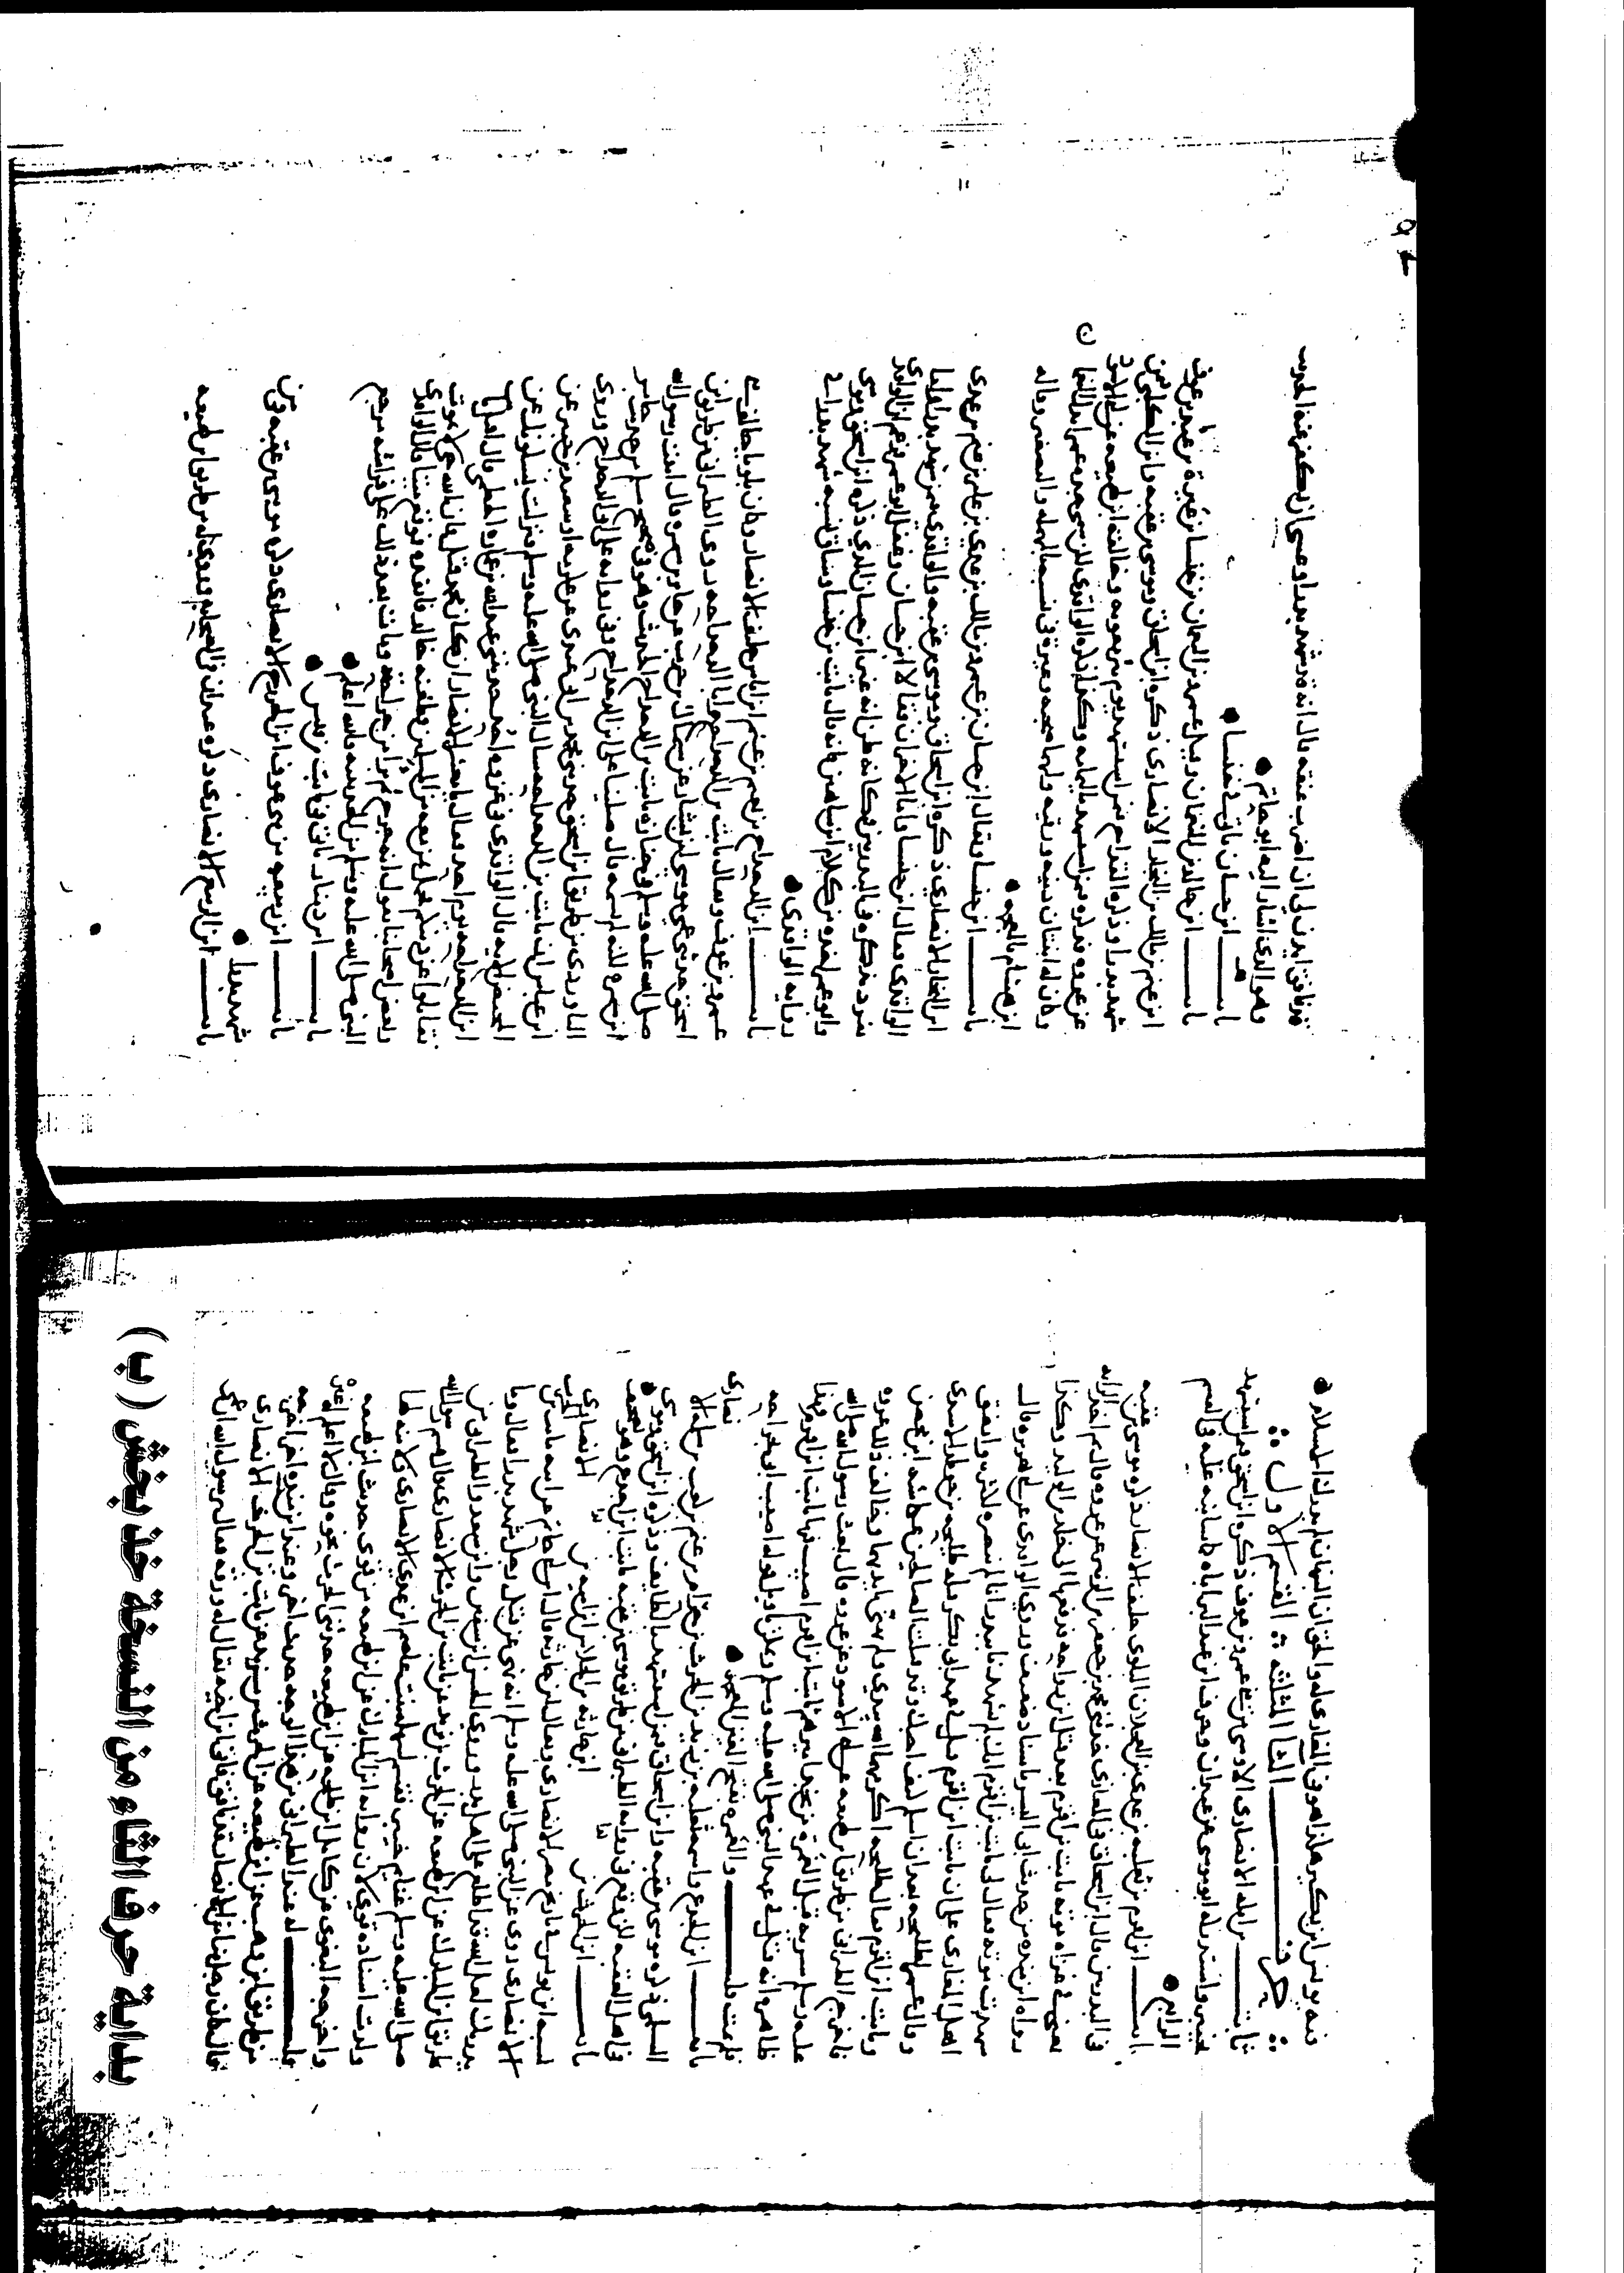 فيه يونس ابن بكير هل زاهو في المغازي له والحق ان التيهان لم يدرك الاسلام
حرف الثا المثلثه القسم الاول
ثابت بن اثله الانصاري الاوسي من بني عمرو بن عوف ذكره ابن اسحق فيمن استشهد
بخيبر واستدركه ابو موسى عن عبدان وحرف ابن عبد البر اباه
الرابع
ثابت ابن اقرم بن ثعلبه بن عدي بن العجلان البلوي حليف الانصار ذكره موسى بن عقبه
في البدريين وقال ابن اسحاق في المغازي حدثني محمد بن جعفر بن الزبير عن عروه قال ثم اخذ الرايه
يعني في غزاه موته ثابت بن اقرم بعد قتل ابن رواحه فدفعها الى خالد بن الوليد وكذا
رواه ابن منده من حديث ابي اليسر باسناد ضعيف وروى الواقدي عن ابي هريره قال
شهدت موته فقال لي ثابت بن اقرم انك لم تشهدنا ببدر انا لم ننصر بالكثره واتفق
اهل المغازي على ان ثابت ابن اقرم قتل في عهد ابي بكر قتله طليحه بن خويلد الاسدي
وقال عمر لطليحه بعد ان اسلم كيف احبك وقد قتلت الصالحين عكاشه ابن محصن
وثابت ابن اقرم فقال طليحه اكرمهما الله بيدي ولم يهني بايديهما وخالف ذلك عروه
فاخرج الطبراني من طريق ابن لهيعه عن ابي الاسود عن عروه قال بعث رسول الله صلى الله
عليه وسلم سريه قبل الغمره من نجد اميرهم ثابت ابن اقرم اصيب فيها ثابت ابن اقرم فهذا
ظاهره انه قتل في عهد النبي صلى الله عليه وسلم ويمكن تاويل قوله اصيب اي بجراحه
فلم يمت قلت والغمره بفتح الغين المعجمه
ثابت ابن الجذع واسمه ثعلبه بن زيد بن الحرث بن حرام بن غنم بن كعب بن سلمه الانصاري
السلمي ذكره موسى بن عقبه وابن اسحاق فيمن استشهد بالطايف وذكره ابن اسحق وموسى
في اهل العقبه ووقع في روايه الطبراني من طريق موسى بن عقبه ثابت ابن اجدع وهو تصحيف
ثابت ابن الحرث بن ابن حارثه بن الجلاس ابن اميه بن الانصاري
نسبه ابن يونس فيمن دخل مصر الانصاري ويقال ابن حارثه قال ابن ابي حاتم عن ابيه ثابت بن الحرث
الانصاري روى عن النبي صلى الله عليه وسلم انه نهى عن قتل رجل شهد بدرا فقال وما
يدريك لعل الله قد اطلع على اهل بدر وروى الحسن ابن سفين وابن سعد والطبراني من
طريق ابن المبارك عن ابن لهيعه عن الحرث بن يزيد عن ثابت بن الحرث الانصاري قال قسم رسول الله
صلى الله عليه وسلم غنايم خيبر فقسم لسهله بنت عاصم بن عدي الانصاري ولابنه لها
ولدت اسناده قوي لان روايه ابن المبارك عن ابن لهيعه من قوي حديث ابن لهيعه
واخرجه البغوي عن كامل ابن طلحه عن ابن لهيعه حدثني الحرث نحوه وقال لا اعلم له غيره
قلت له عند الطبراني من هذا الوجه حديث اخر وعند ابن منده اخر اخرجه
من طريق ابن وهب عن ابن لهيعه عن الحرث بن يزيد عن ثابت بن الحرث الانصاري
قال كان رجل منا من الانصار قد نافق فاتى ابن اخيه يقال له ورقه فقال يرسول الله ان عمي
بداية حرف الثاء من النسخة خذ بخش (ب)
قد نافق ايذن لي ان اضرب عنقه فقال انه قد شهد بدرا وعسى ان يكفر عنه الحديث
وهو الذي اشار اليه ابو حاتم
ثابت ابن حسان ياتي في خنسا
ثابت ابن خالد بن النعمان وقيل عمرو بن النعمان بن خنسا بن عسيرة بن عبد بن عوف
ابن غنم بن مالك بن النجار الانصاري ذكره ابن اسحاق وموسى بن عقبه وابن الكلبي فيمن
شهد بدرا وذكره القداح فيمن استشهد يوم بئر معونه وخالفه ابن لهيعه عن ابي الاسود
عن عروه فذكره فيمن استشهد باليمامه وكذا ذكره الواقدي لكن سمى جده عمرا بدل النعمان
وكان له ابنتان دبيه ورقيه ولها صحبه وعسيرة في نسبه بالمهمله والتصغير وقال
ابن هشام بالمعجمه
ثابت ابن خنسا ويقال ابن حسان بن عمرو بن مالك بن عدي بن عامر بن غنم بن عدي
ابن النجار الانصاري ذكره ابن اسحاق وموسى بن عقبه والواقدي فيمن شهد بدرا
الواقدي فقال ابن خنسا واما الاخران فقالا ابن حسان وغفل ابو عمر فزعم ان الواقدي
تفرد بذكره في البدريين وكانه ظن انه غير ابن حسان الذي ذكره ابن اسحق وموسى
وابو عمر اخذه من كلام ابن شاهين فانه قال ثابت بن خنسا وساق نسبه شهد بدرا في
روايه الواقدي
ثابت ابن الدحداح بن نعيم بن غنم بن اياس حليف الانصار وكان بلويا حالف بني
عمرو بن عوف ويقال ثابت بن الدحداحه ويكنى ابا الدحداح روى الطبراني من طريق ابن
اسحق حدثني عمي موسى بن يسار عن سماك بن حرب عن جابر بن سمره قال رسول الله
صلى الله عليه وسلم في جنازه ثابت بن الدحداح الحديث وهو في صحيح مسلم من حديث جابر
ابن سمره لكنه لم يسمه قال صلينا على ابن الدحداح وفي روايه على ابي الدحداح وروى
الباوردي من طريق ابن اسحق حدثني محمد بن ابي محمد عن عكرمه او سعيد بن جبير عن
ابن عباس ان ثابت بن الدحداحه سال النبي صلى الله عليه وسلم فنزلت يسئلونك عن
المحيض الايه قال الواقدي في غزوه احد حدثني عبد الله بن عمار الخطمي قال اقبل ثابت
ابن الدحداحه يوم احد فقال يا معشر الانصار ان كان محمد قتل فان الله حي لا يموت
فقاتلوا عن دينكم فحمل بمن معه من المسلمين فطعنه خالد فانفذه فوقع ميتا قال الواقدي
وبعض اصحابنا يقول انه جرح ثم برا من جراحته ومات بعد ذلك على فراشه مرجع
النبي صلى الله عليه وسلم من الحديبيه والله اعلم
ثابت ابن دينار ياتي في ثابت بن قيس
ثابت ابن ربيعه من بني عوف ابن الخزرج الانصاري ذكره موسى بن عقبه فيمن
شهد بدرا
ثابت ابن الربيع الانصاري ذكره عبدان في الصحابه وروى له من طريق ابن لهيعه